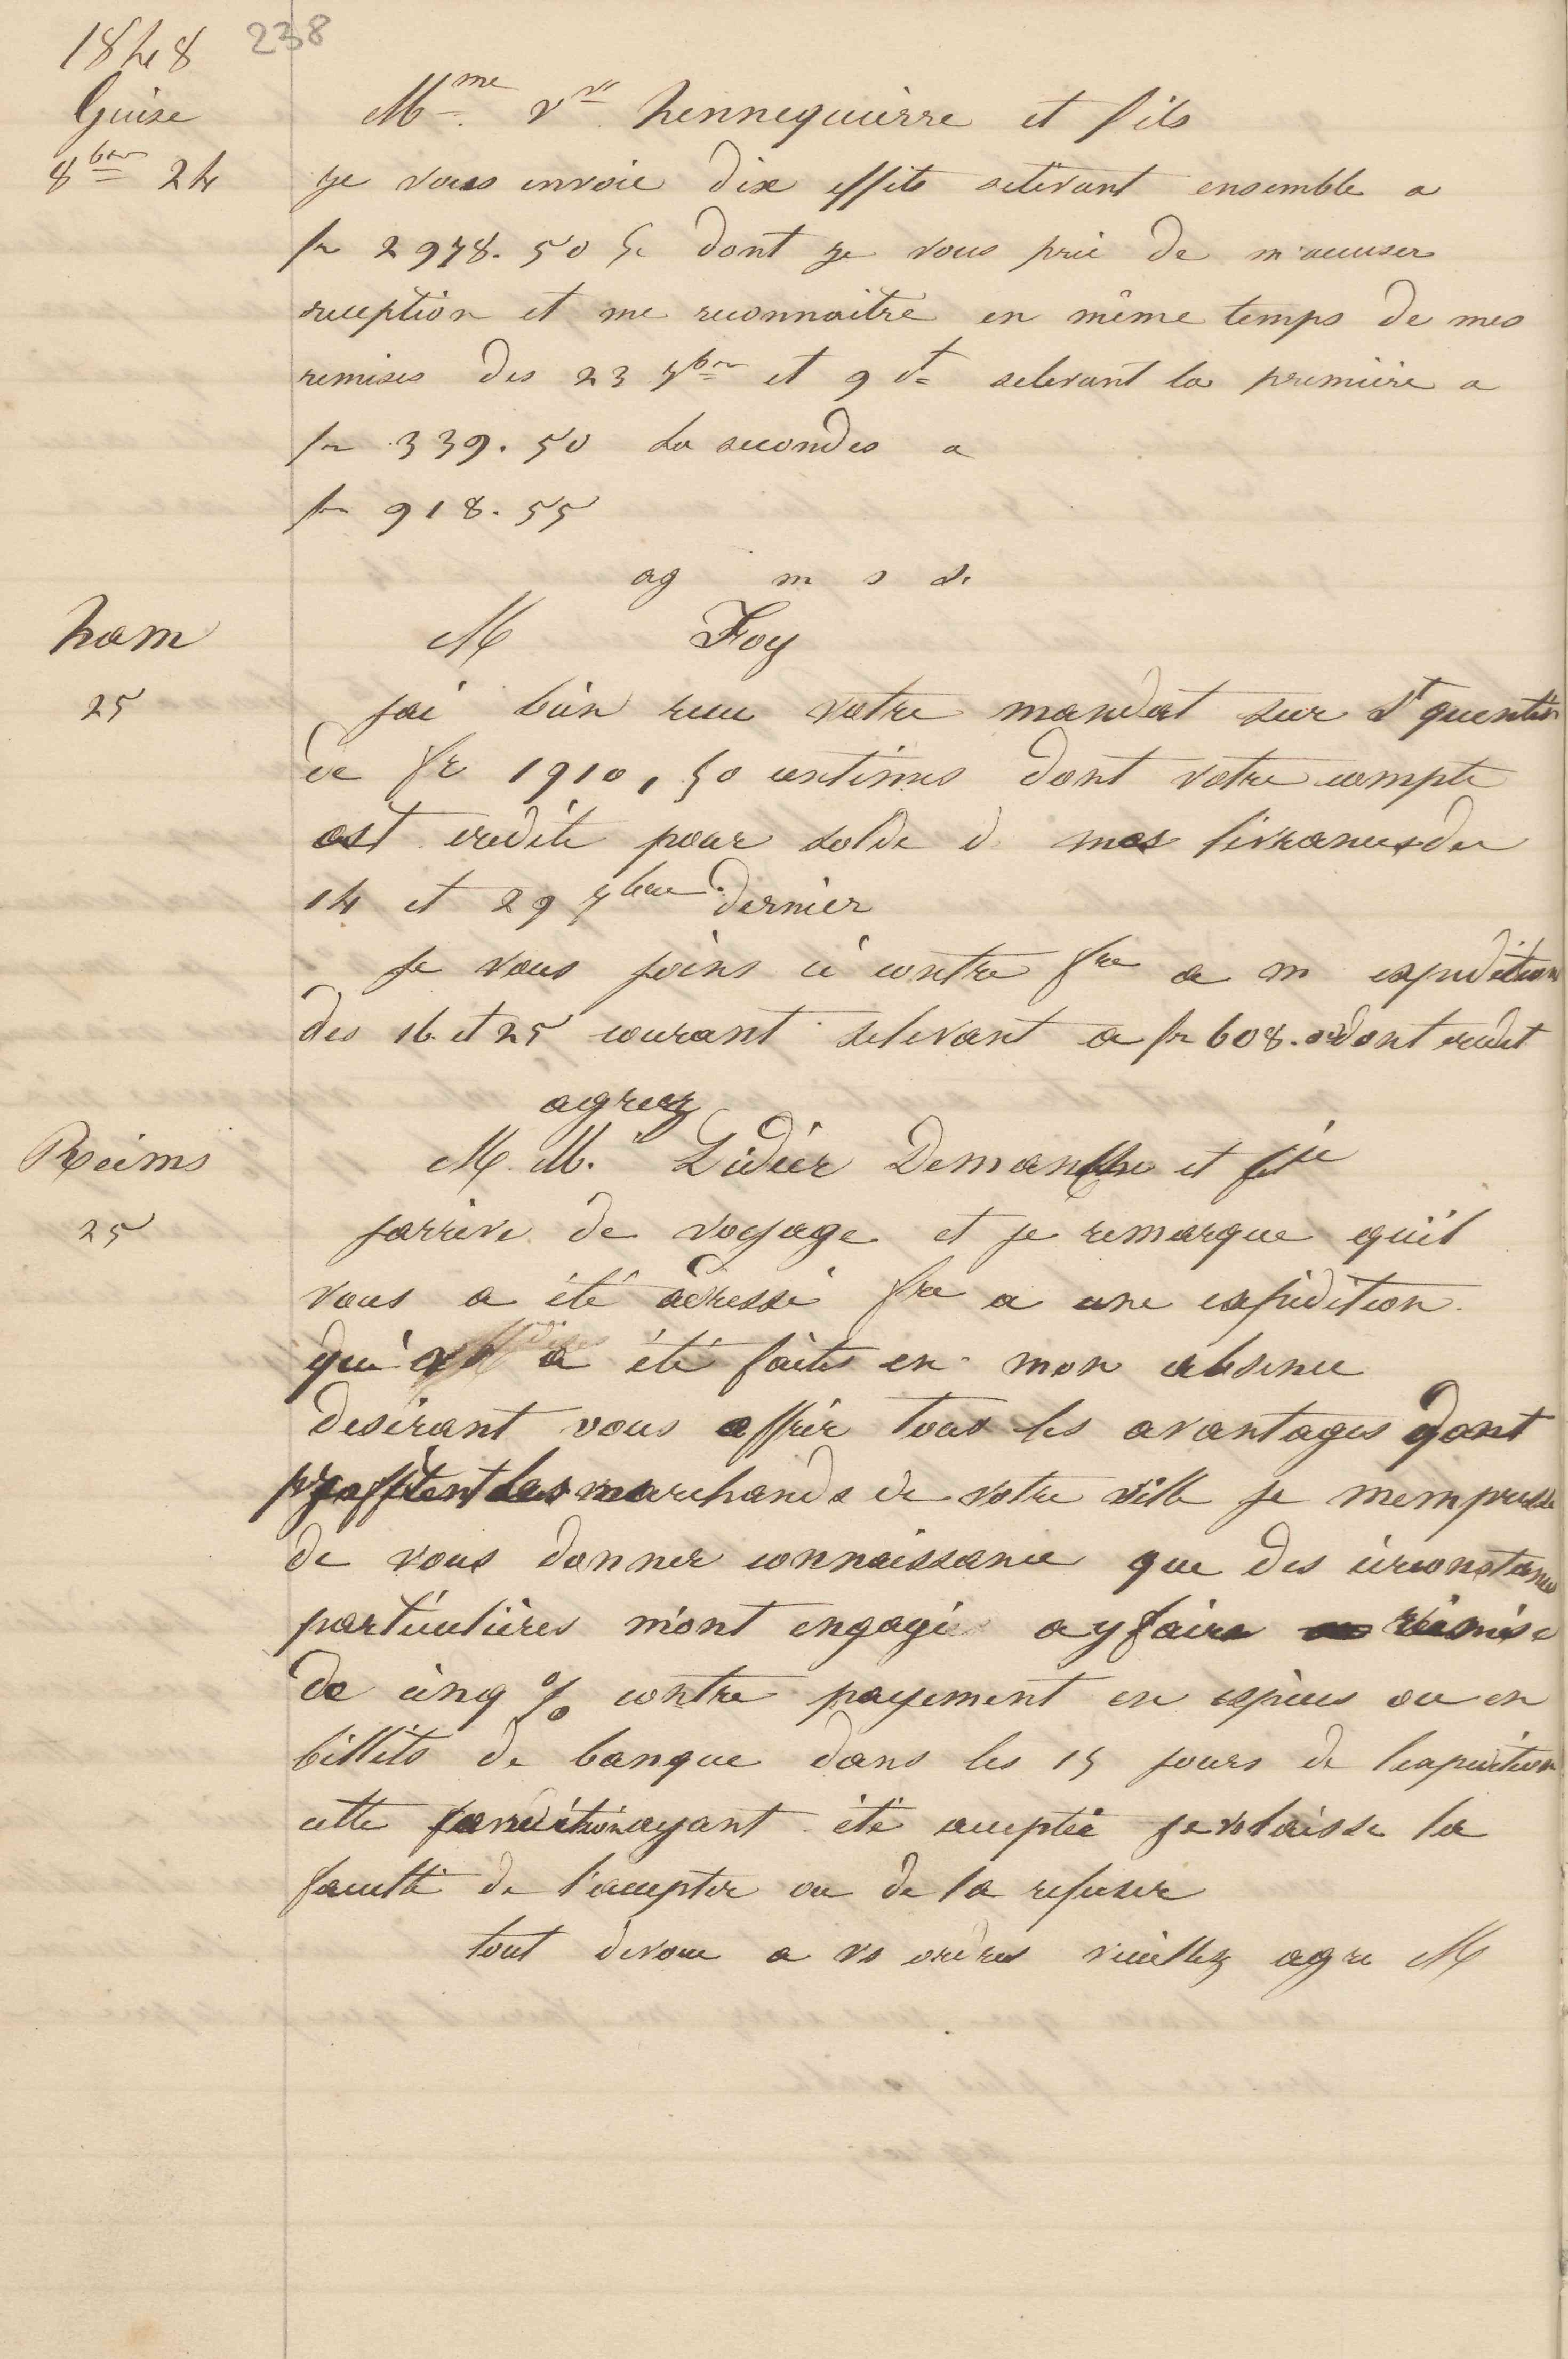 1848 238
Guise
8bre 24
Mme Ve hennequierre et fils
je vous envoie dix effets selevant ensemble a
fr 2978. 50 c dont je vous prie de m'accuser
reception et me reconnaitre en même temps de mes
remises des 23 7bre et 9 ct selevant la premiere a
fr 339. 50 la secondes a
fr 918. 55
ag m s s.
ham
25
M Foy
jai bien recu votre mandat sur St quentin
de fr 1910, 50 centimes dont votre compte
est credité pour solde d mes livrances du
14 et 29 7bre dernier
je vous joins ci contre fre a m expedition
des 16 et 25 courant selevant a fr 608. dont credit
agreez
Reims
25
M. M. Didier et Cie
jarrive de voyage et je remarque quil
vous a été adressé fre a une expédition
qui a été faite en mon absence
desirant vous offrir tous les avantages dont
profitent les marchands de votre ville je mempresse
de vous donner connaissance que des circonstances
particulières m'ont engagé a y faire remise
de cinq % contre payement en espèces ou en
billets de banque dans les 15 jours de lexpedition
cette condition ayant été acceptée je vs laisse la
faculté de l'accepter ou de la refuser
tout devoue a vs ordres veuillez agre M